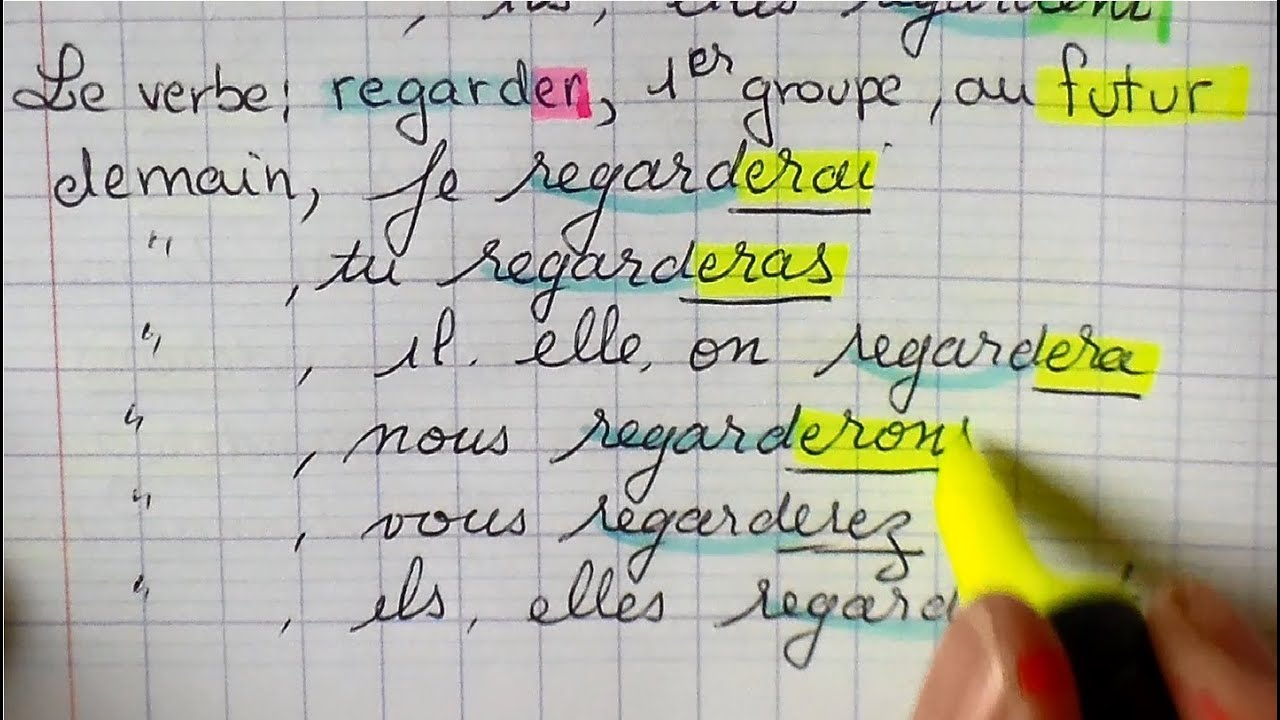 , ils, elles regardent
Le verbe; regarder, 1er groupe, au futur
demain, Je regarderai
" , tu regarderas
" , il. elle, on regardera
" , nous regarderons
" , vous regarderez
" , ils, elles